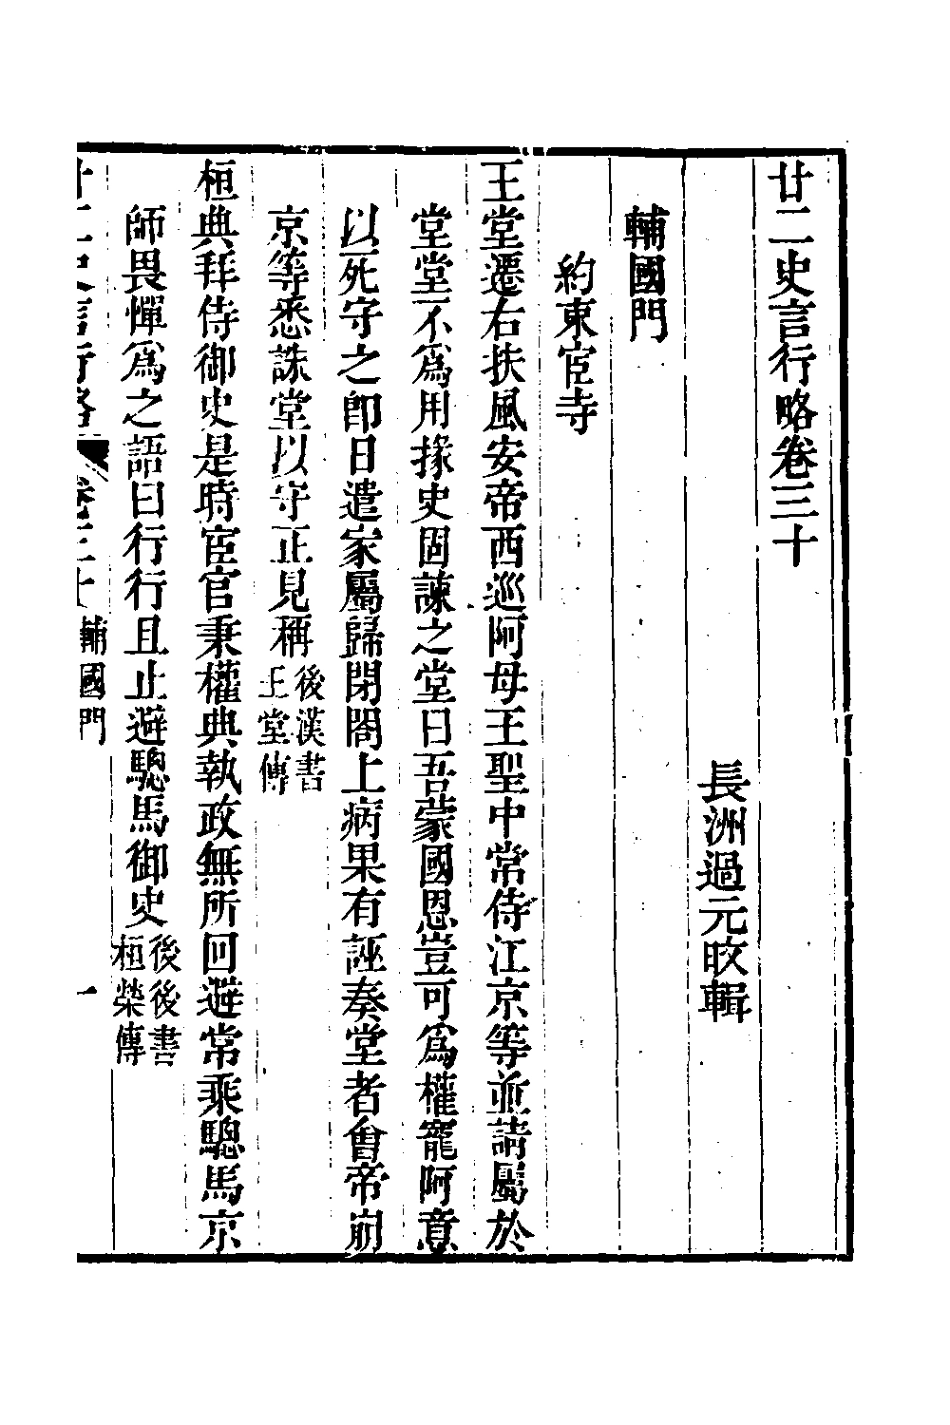 廿二史言行略卷三十
長洲過元旼輯
輔國門
約束宦寺
王堂遷右扶風安帝西巡阿母王聖中常侍江京等並請屬於
堂堂不爲用掾史固諫之堂曰吾蒙國恩豈可爲權寵阿意
以死守之卽日遣家屬歸閉閤上病果有誣奏堂者會帝崩
京等悉誅堂以守正見稱後漢書王堂傳
桓典拜侍御史是時宦官秉權典執政無所回避常乘驄馬京
師畏憚爲之語曰行行且止避驄馬御史後後書桓榮傳
廿二史言行略 卷三十 輔國門 一